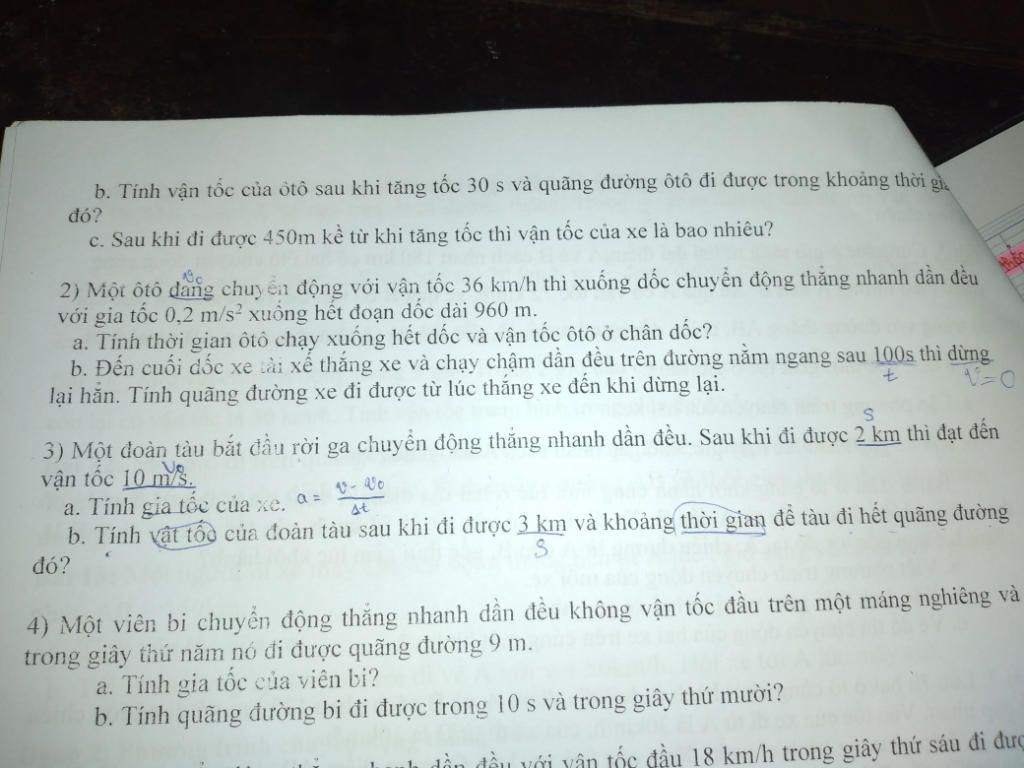 b. Tính vận tốc của ôtô sau khi tăng tốc 30 s và quãng đường ôtô đi được trong khoảng thời
đó?
c. Sau khi đi được 450m kể từ khi tăng tốc thì vận tốc của xe là bao nhiêu?
v₀
2) Một ôtô đang chuyển động với vận tốc 36 km/h thì xuống dốc chuyển động thẳng nhanh dần đều
với gia tốc 0,2 m/s² xuống hết đoạn dốc dài 960 m.
a. Tính thời gian ôtô chạy xuống hết dốc và vận tốc ôtô ở chân dốc?
b. Đến cuối dốc xe tài xế thắng xe và chạy chậm dần đều trên đường nằm ngang sau 100s thì dừng
t v=0
lại hẳn. Tính quãng đường xe đi được từ lúc thắng xe đến khi dừng lại.
S
3) Một đoàn tàu bắt đầu rời ga chuyển động thẳng nhanh dần đều. Sau khi đi được 2 km thì đạt đến
v₀
vận tốc 10 m/s.
a. Tính gia tốc của xe. a = v - v₀ / Δt
b. Tính vât tốc của đoàn tàu sau khi đi được 3 km và khoảng thời gian để tàu đi hết quãng đường
S
đó?
4) Một viên bi chuyển động thẳng nhanh dần đều không vận tốc đầu trên một máng nghiêng và
trong giây thứ năm nó đi được quãng đường 9 m.
a. Tính gia tốc của viên bi?
b. Tính quãng đường bi đi được trong 10 s và trong giây thứ mười?
dần đều với vận tốc đầu 18 km/h trong giây thứ sáu đi